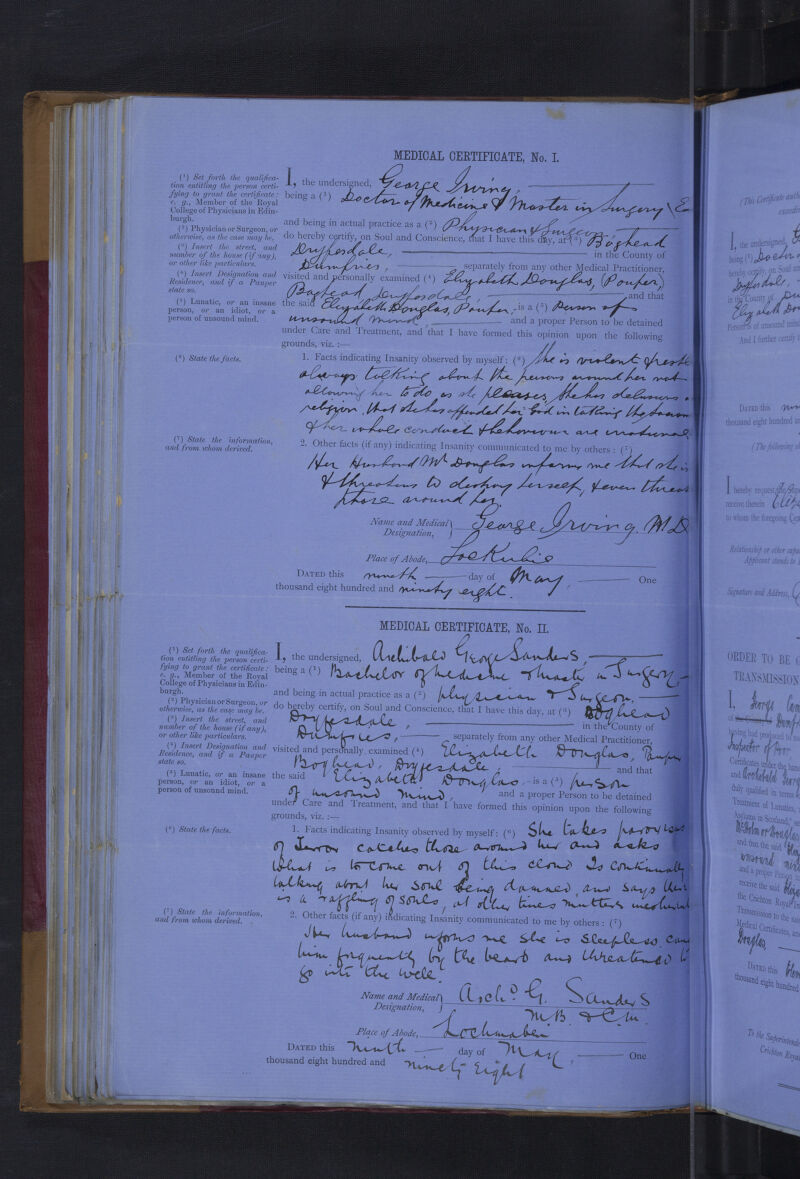 MEDICAL CERTIFICATE, No. I.
(1) Set forth the qualifica-
tion entitling the person certi-
fying to grant the certificate:
e. g., Member of the Royal
College of Physicians in Edin-
burgh.
(2) Physician or Surgeon, or
otherwise, as the case may be.
(3) Insert the street, and
number of the house (if any),
or other like particulars.
(4) Insert Designation and
Residence, and if a Pauper
state so.
(5) Lunatic, or an insane
person, or an idiot, or a
person of unsound mind.
I, the undersigned, George Irving,
being a (1) Doctor of Medicine & Master in Surgery
and being in actual practice as a (2) Physician & Surgeon,
do hereby certify, on Soul and Conscience, that I have this day, at (3) Boghead
Dryfesdale, in the County of
Dumfries, separately from any other Medical Practitioner,
visited and personally examined (4) Elizabeth Douglas, (Pauper,)
Boghead, Dryfesdale, and that
the said Elizabeth Douglas, Pauper, is a (5) Person of
unsound mind, and a proper Person to be detained
under Care and Treatment, and that I have formed this opinion upon the following
grounds, viz. :—
(6) State the facts.
1. Facts indicating Insanity observed by myself: (6) She is violent & restl
always talking about the persons around her not
allowing her to do as she pleases, She has delusions
religion, that she has offended her God in taking the
& her whole conduct & behaviour are irrational
(7) State the information,
and from whom derived.
2. Other facts (if any) indicating Insanity communicated to me by others: (7)
Her Husband Mr Douglas informs me that she is
& threatens to destroy herself, & even threat
those around her
Name and Medical
Designation, George Irving. M.D
Place of Abode, Lockerbie
DATED this ninth day of May, One
thousand eight hundred and ninety eight.
MEDICAL CERTIFICATE, No. II.
(1) Set forth the qualifica-
tion entitling the person certi-
fying to grant the certificate:
e. g., Member of the Royal
College of Physicians in Edin-
burgh.
(2) Physician or Surgeon, or
otherwise, as the case may be.
(3) Insert the street, and
number of the house (if any),
or other like particulars.
(4) Insert Designation and
Residence, and if a Pauper
state so.
(5) Lunatic, or an insane
person, or an idiot, or a
person of unsound mind.
I, the undersigned, Archibald George Sanders,
being a (1) Bachelor of medicine & master in Surgery
and being in actual practice as a (2) physician & Surgeon.
do hereby certify, on Soul and Conscience, that I have this day, at (3) Boghead
Dryfesdale, in the County of
Dumfries, separately from any other Medical Practitioner,
visited and personally examined (4) Elizabeth Douglas, Pauper
Boghead, Dryfesdale and that
the said Elizabeth Douglas is a (5) person
of unsound mind, and a proper Person to be detained
under Care and Treatment, and that I have formed this opinion upon the following
grounds, viz. :—
(6) State the facts.
1. Facts indicating Insanity observed by myself: (6) She takes paroxysms
of Terror catches those around her and asks
What is to come out of this cloud Is continually
talking about her soul being damned, and says there
is a raffling of souls, at other times mutters incoherent
(7) State the information,
and from whom derived.
2. Other facts (if any) indicating Insanity communicated to me by others: (7)
Her husband informs me she is sleepless,
him frequently by the beard and threatened to
go into the well.
Name and Medical
Designation, Archd. G. Sanders
M.B. & C.M.
Place of Abode, Lochmaben
DATED this ninth day of May, One
thousand eight hundred and ninety eight
(This Certificate auth
I, the undersigned,
being (1) Doctor
hereby certify, on Soul an
Dryfesdale,
in the County of Du
Elizabeth Do
Person of unsound mind
And I further certify t
DATED this
thousand eight hundred an
(The following
I hereby request
receive therein Eliz
to whom the foregoing Cer
Relationship or other capa
Applicant stands to
Signature and Address,
ORDER TO BE
TRANSMISSION
I, George
having had produced to
Inspector of Poor
Certificates under the han
and Archibald Georg
duly qualified in terms
Treatment of Lunatics,
Asylums in Scotland,
or Douglas
and that the said
unsound mind
and a proper Person
receive the said
the Crichton Royal In
Transmission to the sai
Medical Certificates, an
Douglas
DATED this
thousand eight hundred
To the Superintende
Crichton Royal